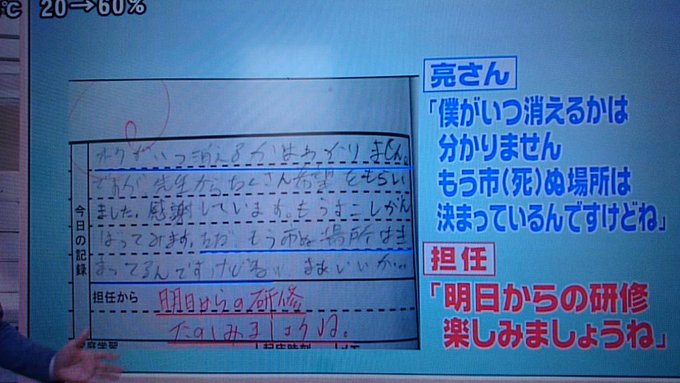 ℃ 20→60%
今日の記録
ボクがいつ消えるかはわかりません。
ですが、先生からたくさん希望をもらい
ました。感謝しています。もうすこしがん
ばってみます。ただ、もう市ぬ場所はき
まってるんですけどね。まあいいか…
担任から
明日からの研修
たのしみましょうね。
庭学習 起床時刻
亮さん
「僕がいつ消えるかは
分かりません
もう市(死)ぬ場所は
決まっているんですけどね」
担任
「明日からの研修
楽しみましょうね」